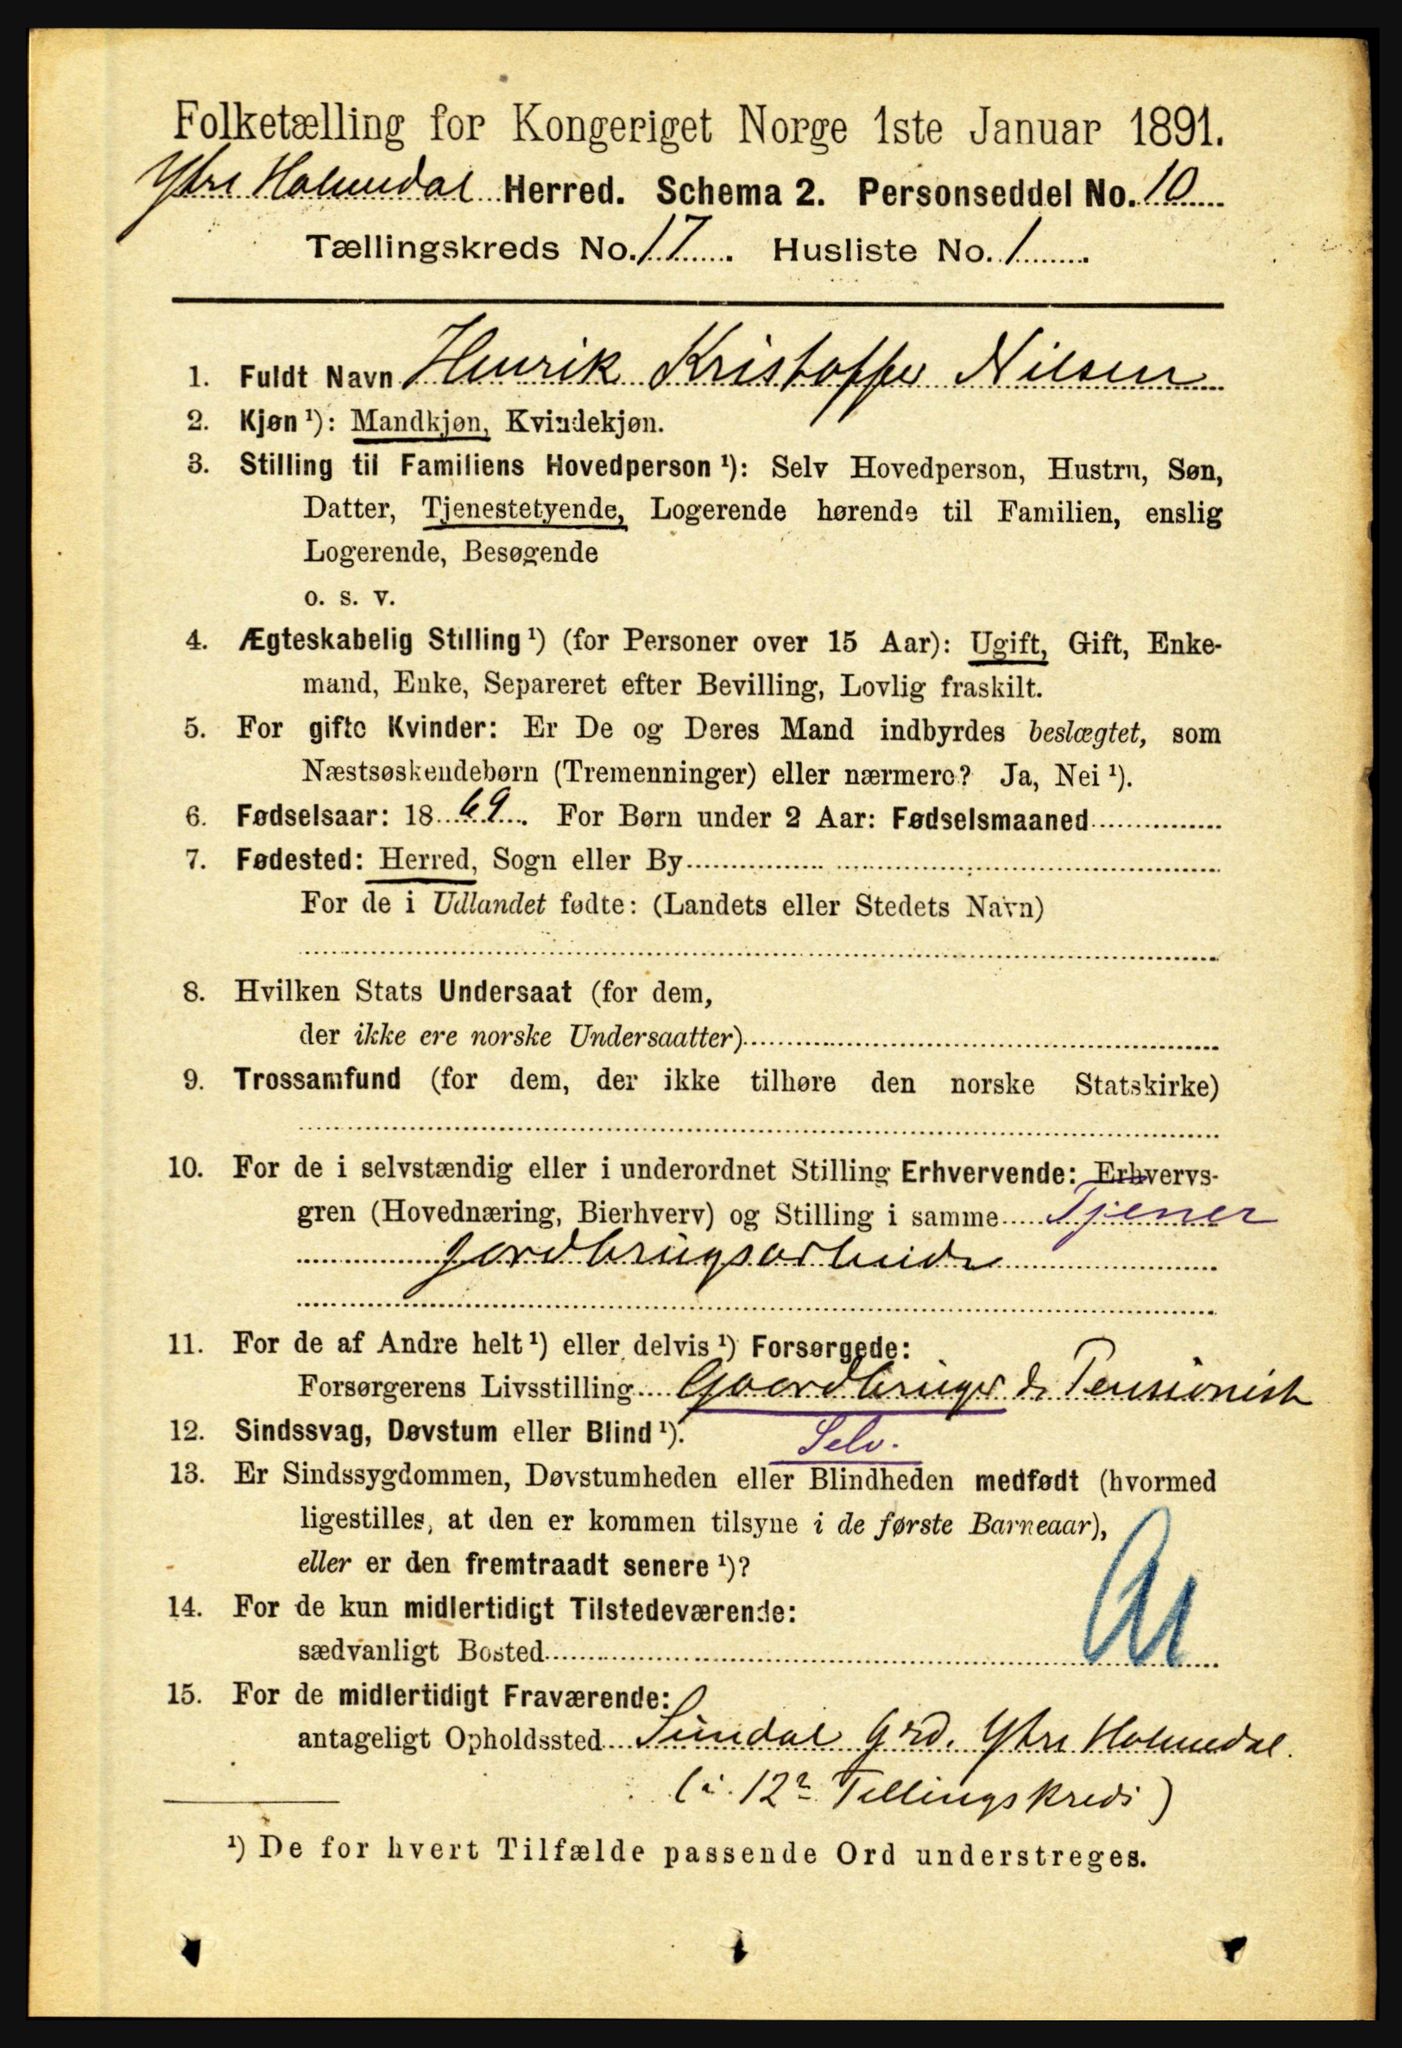 Folketælling for Kongeriget Norge 1ste Januar 1891.
Ytre Holmedal Herred. Schema 2. Personseddel No. 10
Tællingskreds No. 17. Husliste No. 1
1. Fuldt Navn Henrik Kristoffer Nilsen
2. Kjøn ¹): Mandkjøn, Kvindekjøn.
3. Stilling til Familiens Hovedperson ¹): Selv Hovedperson, Hustru, Søn,
Datter, Tjenestetyende, Logerende hørende til Familien, enslig
Logerende, Besøgende
o. s. v.
4. Ægteskabelig Stilling ¹) (for Personer over 15 Aar): Ugift, Gift, Enke-
mand, Enke, Separeret efter Bevilling, Lovlig fraskilt.
5. For gifte Kvinder: Er De og Deres Mand indbyrdes beslægtet, som
Næstsøskendebørn (Tremenninger) eller nærmere? Ja, Nei ¹).
6. Fødselsaar: 1869. For Børn under 2 Aar: Fødselsmaaned
7. Fødested: Herred, Sogn eller By
For de i Udlandet fødte: (Landets eller Stedets Navn)
8. Hvilken Stats Undersaat (for dem,
der ikke ere norske Undersaatter)
9. Trossamfund (for dem, der ikke tilhøre den norske Statskirke)
10. For de i selvstændig eller i underordnet Stilling Erhvervende: Erhvervs-
gren (Hovednæring, Bierhverv) og Stilling i samme Tjener
Jordbrugsarbeide
11. For de af Andre helt ¹) eller delvis ¹) Forsørgede:
Forsørgerens Livsstilling Gaardbruger & Pensionist
12. Sindssvag, Døvstum eller Blind ¹). Selv.
13. Er Sindssygdommen, Døvstumheden eller Blindheden medfødt (hvormed
ligestilles, at den er kommen tilsyne i de første Barneaar),
eller er den fremtraadt senere ¹)?
14. For de kun midlertidigt Tilstedeværende:
sædvanligt Bosted
15. For de midlertidigt Fraværende:
antageligt Opholdssted Sundal Grd. Ytre Holmedal.
(i 12te Tellingskreds)
¹) De for hvert Tilfælde passende Ord understreges.